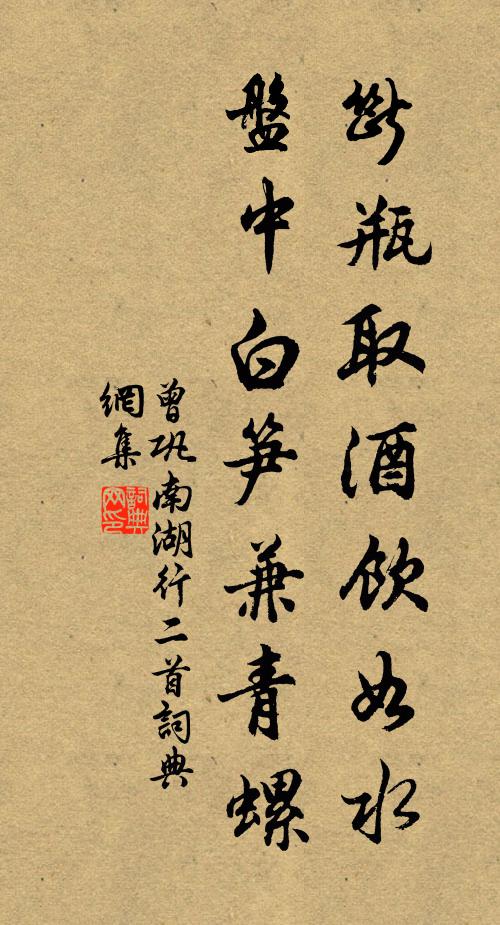 斷瓶取酒飲如水
盤中白笋兼青螺
曾巩南湖行二首詞典
網集
詞典
网印